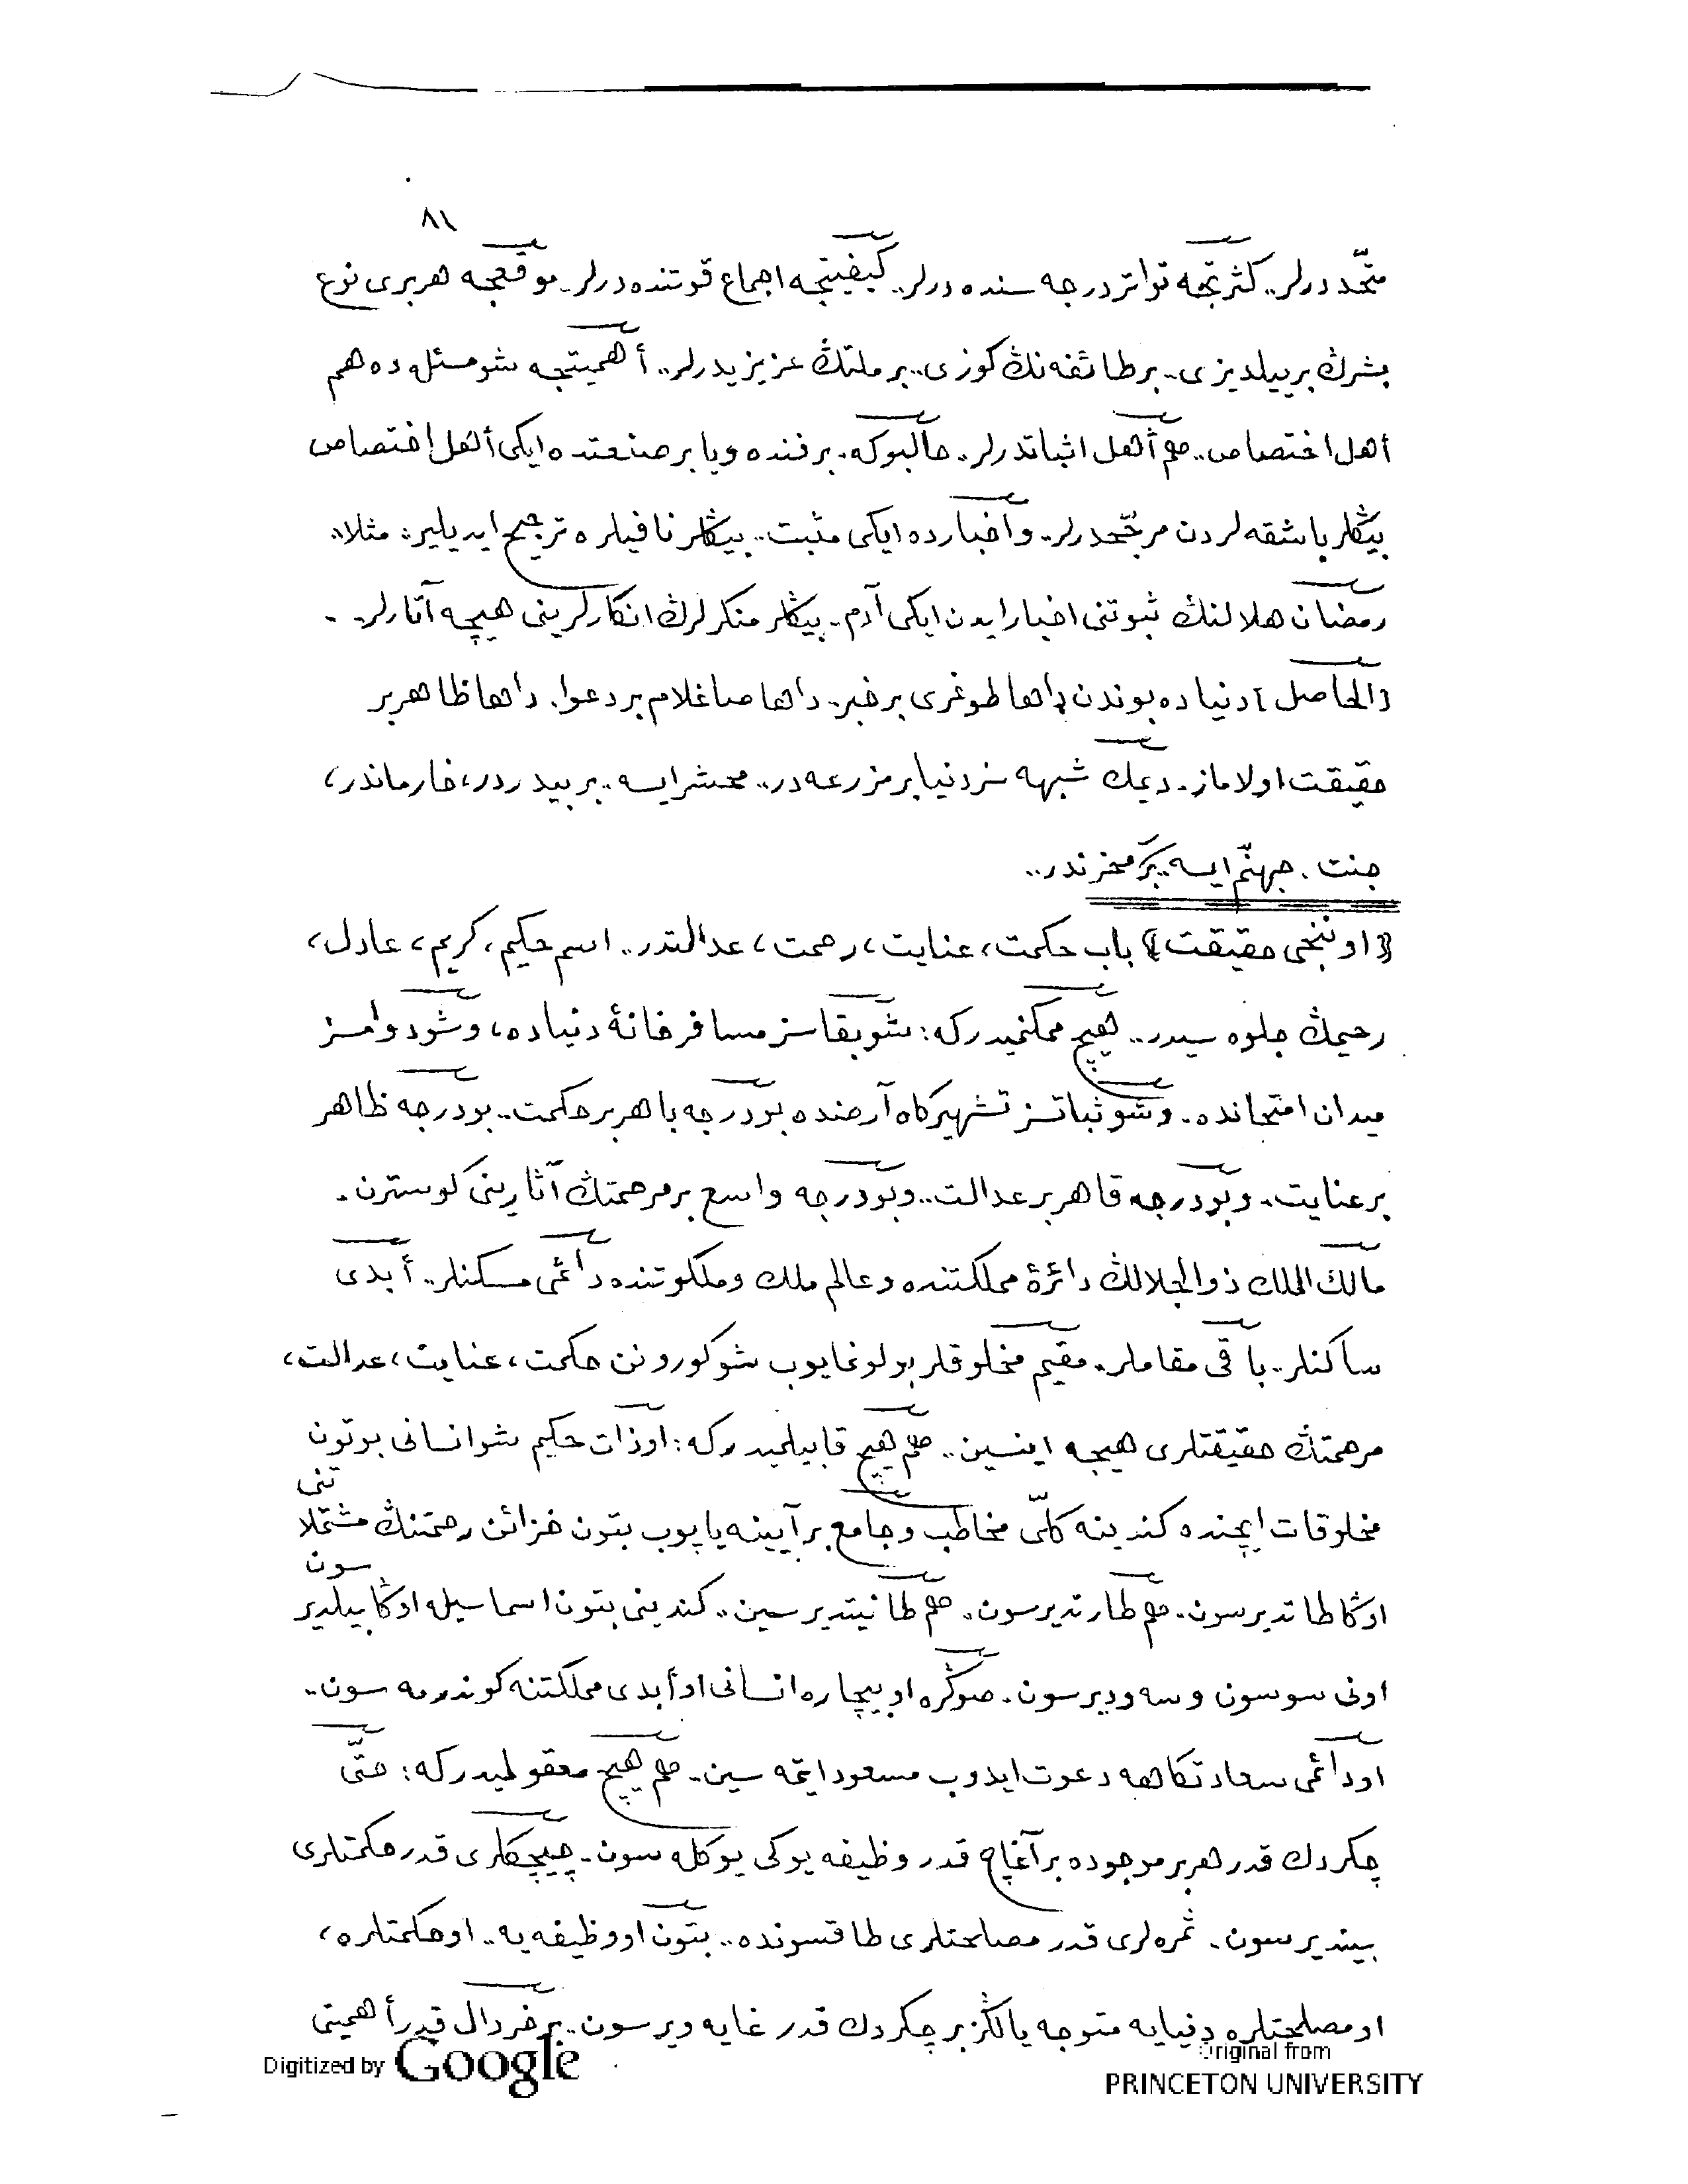 ٨١
متّحددرلر.. كثرتجه تواتر درجه سنده درلر.. كيفيتجه اجماع قوتنده درلر.. موقعجه هربرى نوع
بشرڭ بر ييلديزى.. بر طائفه نڭ كوزى.. بر ملتڭ عزيزيدرلر.. أهميتجه شو مسئله ده هم
أهل اختصاص.. هم أهل اثباتدرلر.. حالبوكه. بر فنده ويا بر صنعتده ايكى أهل اختصاص
بيڭلر باشقه لردن مرجّحدرلر. وأخبارده ايكى مثبت.. بيڭلر نافيلره ترجيح ايديلير: مثلا:
رمضان هلالنڭ ثبوتنى اخبار ايدن ايكى آدم.. بيڭلر منكرلرڭ انكارلرينى هيچه آتارلر..
[الحاصل] دنياده بوندن داها طوغرى بر خبر.. داها صاغلام بر دعوا. داها ظاهر بر
حقيقت اولاماز. ديمك شبهه سز دنيا بر مزرعه در.. محشر ايسه.. بر بيدردر، خارماندر،
جنت، جهنّم ايسه.. بر مخزندر..
﴿اوننجى حقيقت﴾ باب حكمت، عنايت، رحمت، عدالتدر.. اسم حكيم، كريم، عادل،
رحيمڭ جلوه سيدر.. هيچ ممكنميدركه: شو بقاسز مسافرخانۀ دنياده، وشو دوامسز
ميدان امتحانده. وشو ثباتسز تشهيركاه آرضنده بو درجه باهر بر حكمت.. بو درجه ظاهر
بر عنايت.. وبو درجه قاهر بر عدالت.. وبو درجه واسع بر مرحمتڭ آثارينى كوسترن.
مالك الملك ذوالجلالڭ دائرۀ مملكتنده وعالم ملك وملكوتنده دائمى مسكنلر.. أبدى
ساكنلر.. باقى مقاملر. مقيم مخلوقلر بولونمايوب شو كورونن حكمت، عنايت، عدالت،
مرحمتڭ حقيقتلرى هيچه اينسين.. هم هيچ قابيلميدركه: او ذات حكيم شو انسانى بوتون
مخلوقات ايچنده كندينه كلّى مخاطب وجامع بر آيينه ياپوب بتون خزائن رحمتنڭ مشتملاتنى
اوڭا طاتديرسون. هم طارتديرسون. هم طانيتديرسين.. كندينى بتون اسماسيله اوڭا بيلديرسون
اونى سوسون وسه وديرسون. صوڭره او بيچاره انسانى او أبدى مملكتنه كوندرمه سون..
او دائمى سعادتكاهه دعوت ايدوب مسعود ايتمه سين. هم هيچ معقولميدركه: حتّى
چكردك قدر هربر موجوده بر آغاچ قدر وظيفه يوكى يوكله سون. چيچكلرى قدر حكمتلرى
بينديرسون. ثمره لرى قدر مصلحتلرى طاقسونده.. بتون او وظيفه يه.. او حكمتلره،
او مصلحتلره دنيايه متوجه يالڭز بر چكردك قدر غايه ويرسون.. بر خردال قدر أهميتى
Digitized by Google
Original from
PRINCETON UNIVERSITY